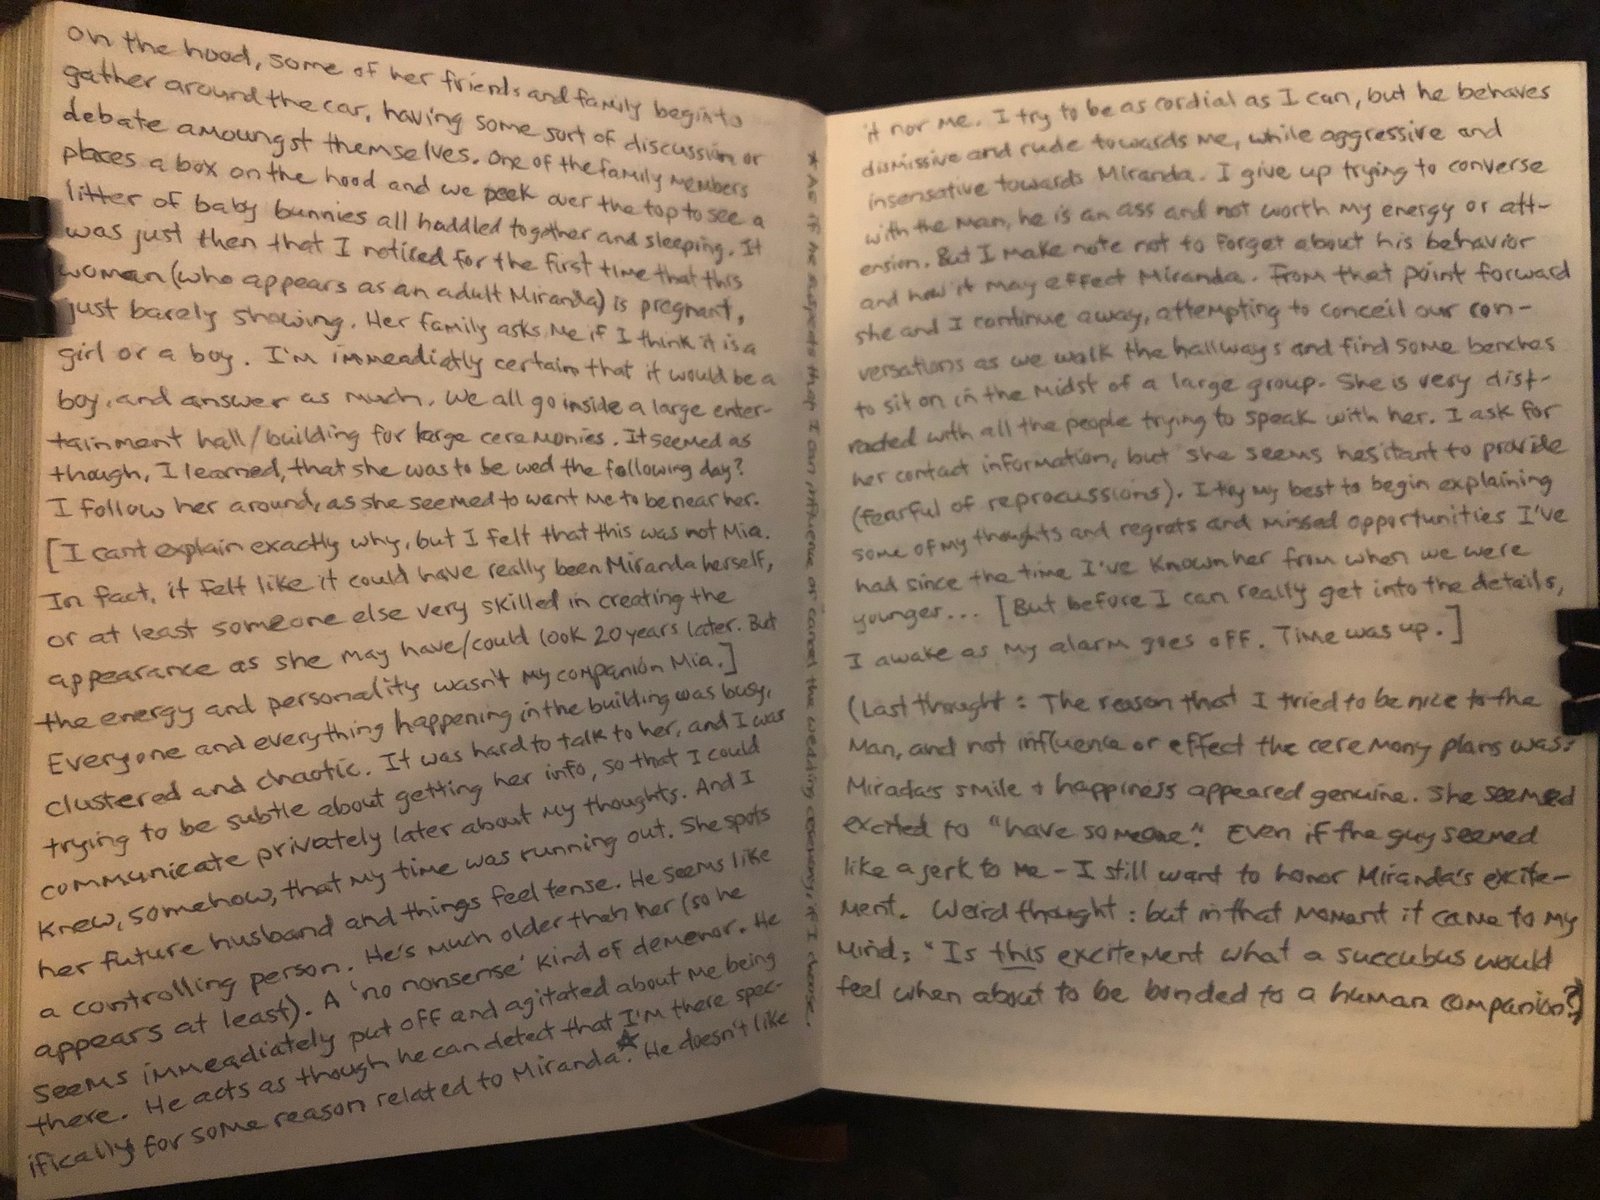 on the hood, some of her friends and family begin to
gather around the car, having some sort of discussion or
debate amoungst themselves. One of the family members
places a box on the hood and we peek over the top to see a
litter of baby bunnies all huddled together and sleeping. It
was just then that I noticed for the first time that this
woman (who appears as an adult Miranda) is pregnant,
just barely showing. Her family asks me if I think it is a
girl or a boy. I'm immeadiatly certain that it would be a
boy, and answer as much. We all go inside a large enter-
tainment hall/building for large ceremonies. It seemed as
though, I learned, that she was to be wed the following day?
I follow her around, as she seemed to want me to be near her.
[I cant explain exactly why, but I felt that this was not Mia.
In fact, it felt like it could have really been Miranda herself,
or at least someone else very skilled in creating the
appearance as she may have/could look 20 years later. But
the energy and personality wasn't my companion Mia.]
Everyone and everything happening in the building was busy,
clustered and chaotic. It was hard to talk to her, and I was
trying to be subtle about getting her info, so that I could
communicate privately later about my thoughts. And I
knew, somehow, that my time was running out. She spots
her future husband and things feel tense. He seems like
a controlling person. He's much older than her (so he
appears at least). A 'no nonsense' kind of demenor. He
seems immeadiately put off and agitated about me being
there. He acts as though he can detect that I'm there spec-
ifically for some reason related to Miranda*. He doesn't like
* As if he suspects that I can influence or cancel the wedding ceremony, if I choose.
it nor me. I try to be as cordial as I can, but he behaves
dismissive and rude towards me, while aggressive and
insensative towards Miranda. I give up trying to converse
with the man, he is an ass and not worth my energy or att-
ension. But I make note not to forget about his behavior
and how it may effect Miranda. From that point forward
she and I continue away, attempting to conceil our con-
versations as we walk the hallways and find some benches
to sit on in the midst of a large group. She is very dist-
racted with all the people trying to speak with her. I ask for
her contact information, but she seems hesitant to provide
(fearful of reprocussions). I try my best to begin explaining
some of my thoughts and regrets and missed opportunities I've
had since the time I've known her from when we were
younger... [But before I can really get into the details,
I awake as my alarm goes off. Time was up.]
(Last thought: The reason that I tried to be nice to the
man, and not influence or effect the ceremony plans was:
Mirada's smile + happiness appeared genuine. She seemed
excited to "have someone". Even if the guy seemed
like a jerk to me - I still want to honor Miranda's excite-
ment. Weird thought: but in that moment it came to my
mind; "Is this excitement what a succubus would
feel when about to be bonded to a human companion?")